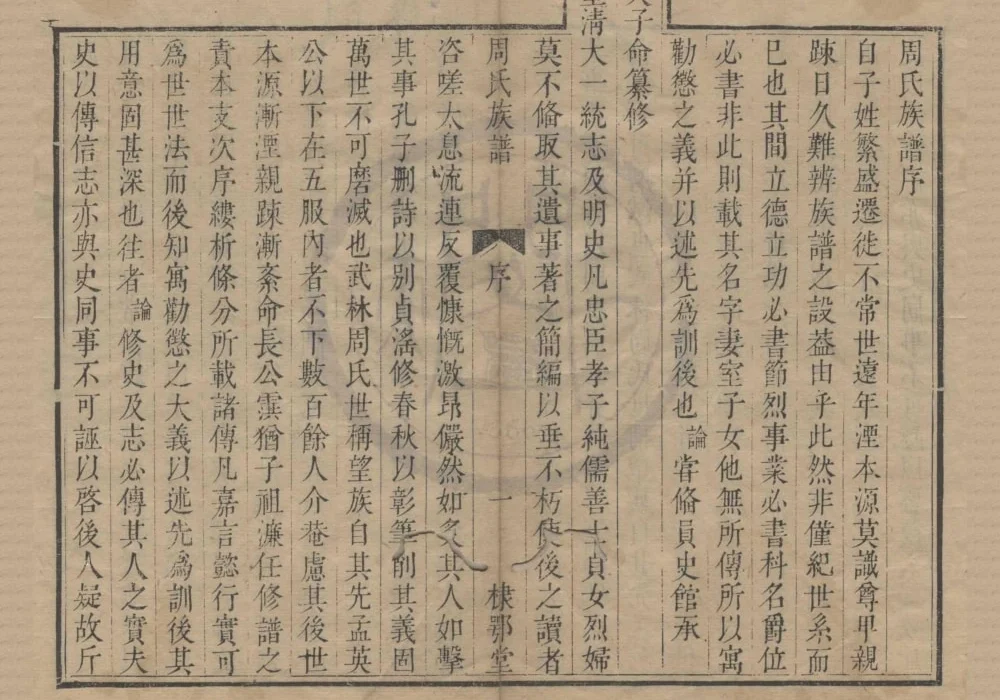 周氏族譜序
自子姓繁盛遷徙不常世遠年湮本源莫識尊卑親
踈日久難辨族譜之設葢由乎此然非僅紀世系而
巳也其間立德立功必書節烈事業必書科名爵位
必書非此則載其名字妻室子女他無所傳所以寓
勸懲之義并以述先爲訓後也論甞俻員史館承
天子命纂修
皇淸大一統志及明史凡忠臣孝子純儒善士貞女烈婦
莫不俻取其遺事著之簡編以垂不朽使後之讀者
周氏族譜 序 一 棣鄂堂
咨嗟太息流連反覆慷慨激昂儼然如炙其人如擊
其事孔子删詩以别貞滛修春秋以彰筆削其義固
萬世不可磨滅也武林周氏世稱望族自其先孟英
公以下在五服內者不下數百餘人介菴慮其後世
本源漸湮親踈漸紊命長公雲猶子祖濂任修譜之
責本支次序縷析條分所載諸傳凡嘉言懿行實可
爲世世法而後知寓勸懲之大義以述先爲訓後其
用意固甚深也往者論修史及志必傳其人之實夫
史以傳信志亦與史同事不可誣以啓後人疑故斤